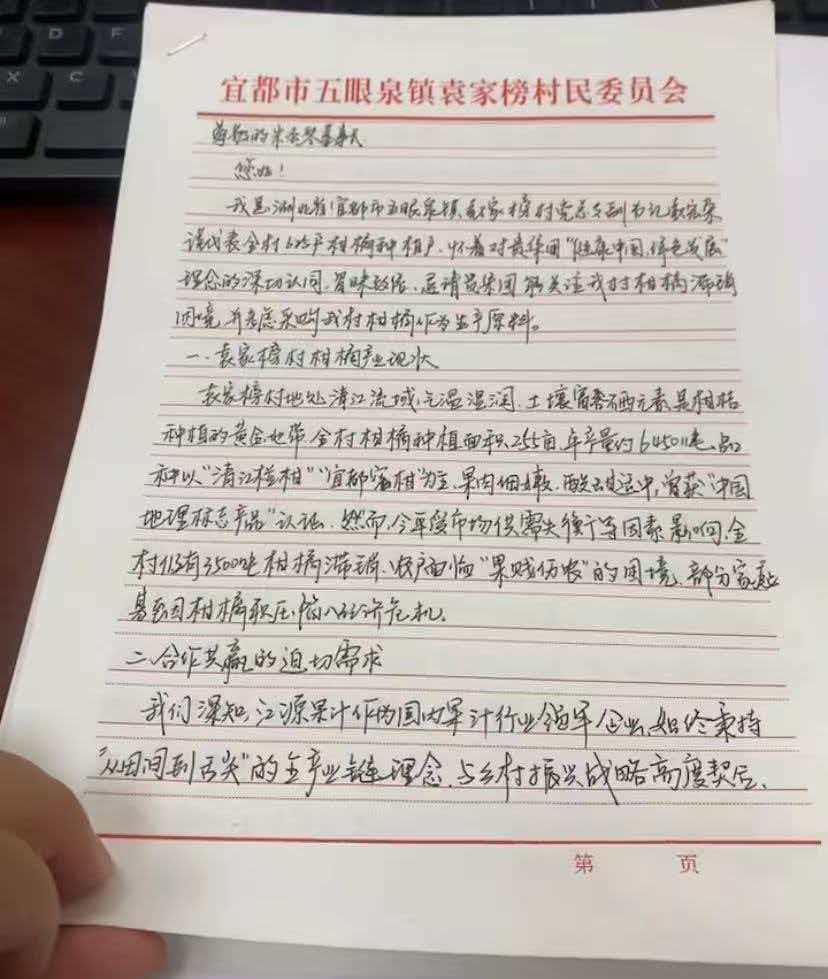 宜都市五眼泉镇袁家榜村民委员会
尊敬的董事长
您好！
我是湖北省宜都市五眼泉镇袁家榜村党总支副书记袁宏
谨代表全村625户柑橘种植户，怀着对贵集团"健康中国，绿色发展"
理念的深切认同，冒昧致信，恳请贵集团能关注我村柑橘滞销
困境，并考虑采购我村柑橘作为生产原料。
一、袁家榜村柑橘产业现状
袁家榜村地处清江流域，气温湿润，土壤富含硒元素，是柑桔
种植的黄金地带，全村柑橘种植面积255亩，年产量约6450吨，品
种以"清江椪柑""宜都蜜柑"为主，果肉细嫩，酸甜适中，曾获"中国
地理标志产品"认证。然而，今年受市场供需失衡等因素影响，全
村仍有3500吨柑橘滞销，农户面临"果贱伤农"的困境，部分家庭
甚至因柑橘积压陷入经济危机。
二、合作共赢的迫切需求
我们深知，江源果汁作为国内果汁行业领军企业，始终秉持
"从田间到舌尖"的全产业链理念，与乡村振兴战略高度契合，
第 页